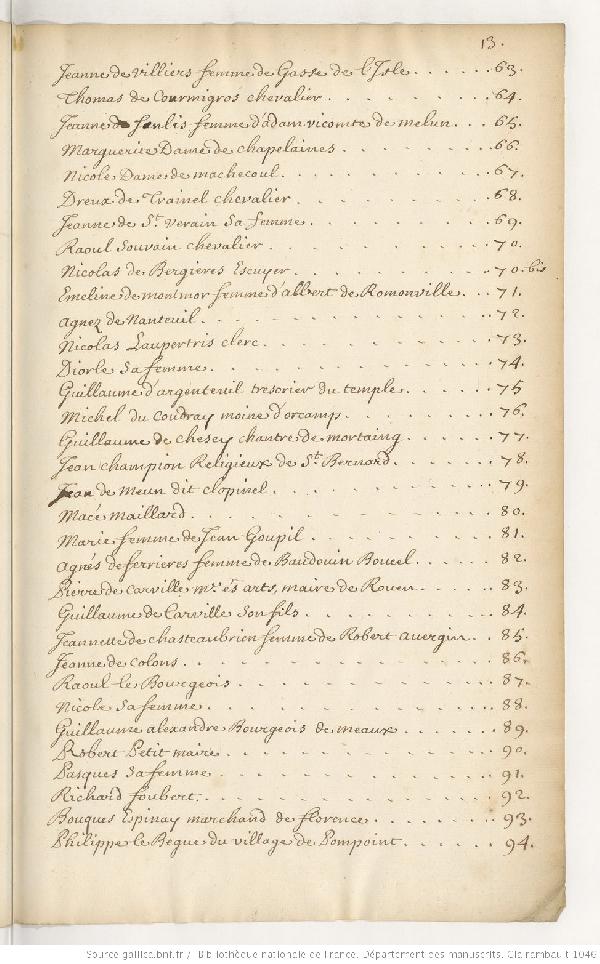 13.
Jeanne de Villiers femme de Gasse de l'Isle . . . . . . 63.
Thomas de Courmigros chevalier . . . . . . . . 64.
Jeanne de Senlis femme d'adam vicomte de melun . . . 65.
Marguerite Dame de chapelaines . . . . . . . . 66.
Nicole Dame de machecoul . . . . . . . . . . 67.
Dreux de Trainel chevalier . . . . . . . . . . 68.
Jeanne de St. Verain sa femme . . . . . . . . . 69.
Raoul Souvain chevalier . . . . . . . . . . 70.
Nicolas de Bergieres Escuyer . . . . . . . . . 70. bis
Emeline de montmor femme d'albert de Romonville . . . 71.
agnez de Nanteuil . . . . . . . . . . . . 72.
Nicolas Laupertris clerc . . . . . . . . . . 73.
Diorle sa femme . . . . . . . . . . . . 74.
Guillaume d'argenteuil tresorier du temple . . . . . 75
Michel du Coudray moine d'orcamp . . . . . . . 76.
Guillaume de chesey chantre de mortaing . . . . . 77.
Jean champion Religieux de St. Bernard . . . . . . 78.
Jean de Meun dit clopinel . . . . . . . . . . 79.
Macé maillard . . . . . . . . . . . . . 80.
Marie femme de Jean Goupil . . . . . . . . . 81.
agnés de ferrieres femme de Baudouin Boucel . . . . 82.
Pierre de Carville me. és arts, maire de Rouen . . . . 83.
Guillaume de Carville son fils . . . . . . . . . 84.
Jeannette de chasteaubrien femme de Robert auvergin . . 85.
Jeanne de colons . . . . . . . . . . . . 86.
Raoul le Bourgeois . . . . . . . . . . . . 87.
Nicole sa femme . . . . . . . . . . . . 88.
Guillaume alexandre Bourgeois de meaux . . . . . 89.
Robert Petit maire . . . . . . . . . . . . 90.
Pasques sa femme . . . . . . . . . . . . 91.
Richard foubert . . . . . . . . . . . . . 92.
Bouques Espinay marchand de florence . . . . . . 93.
Philippe le Begue du village de Pompoint . . . . . 94.
Source gallica.bnf.fr / Bibliothèque nationale de France. Département des manuscrits. Clairambault 1046